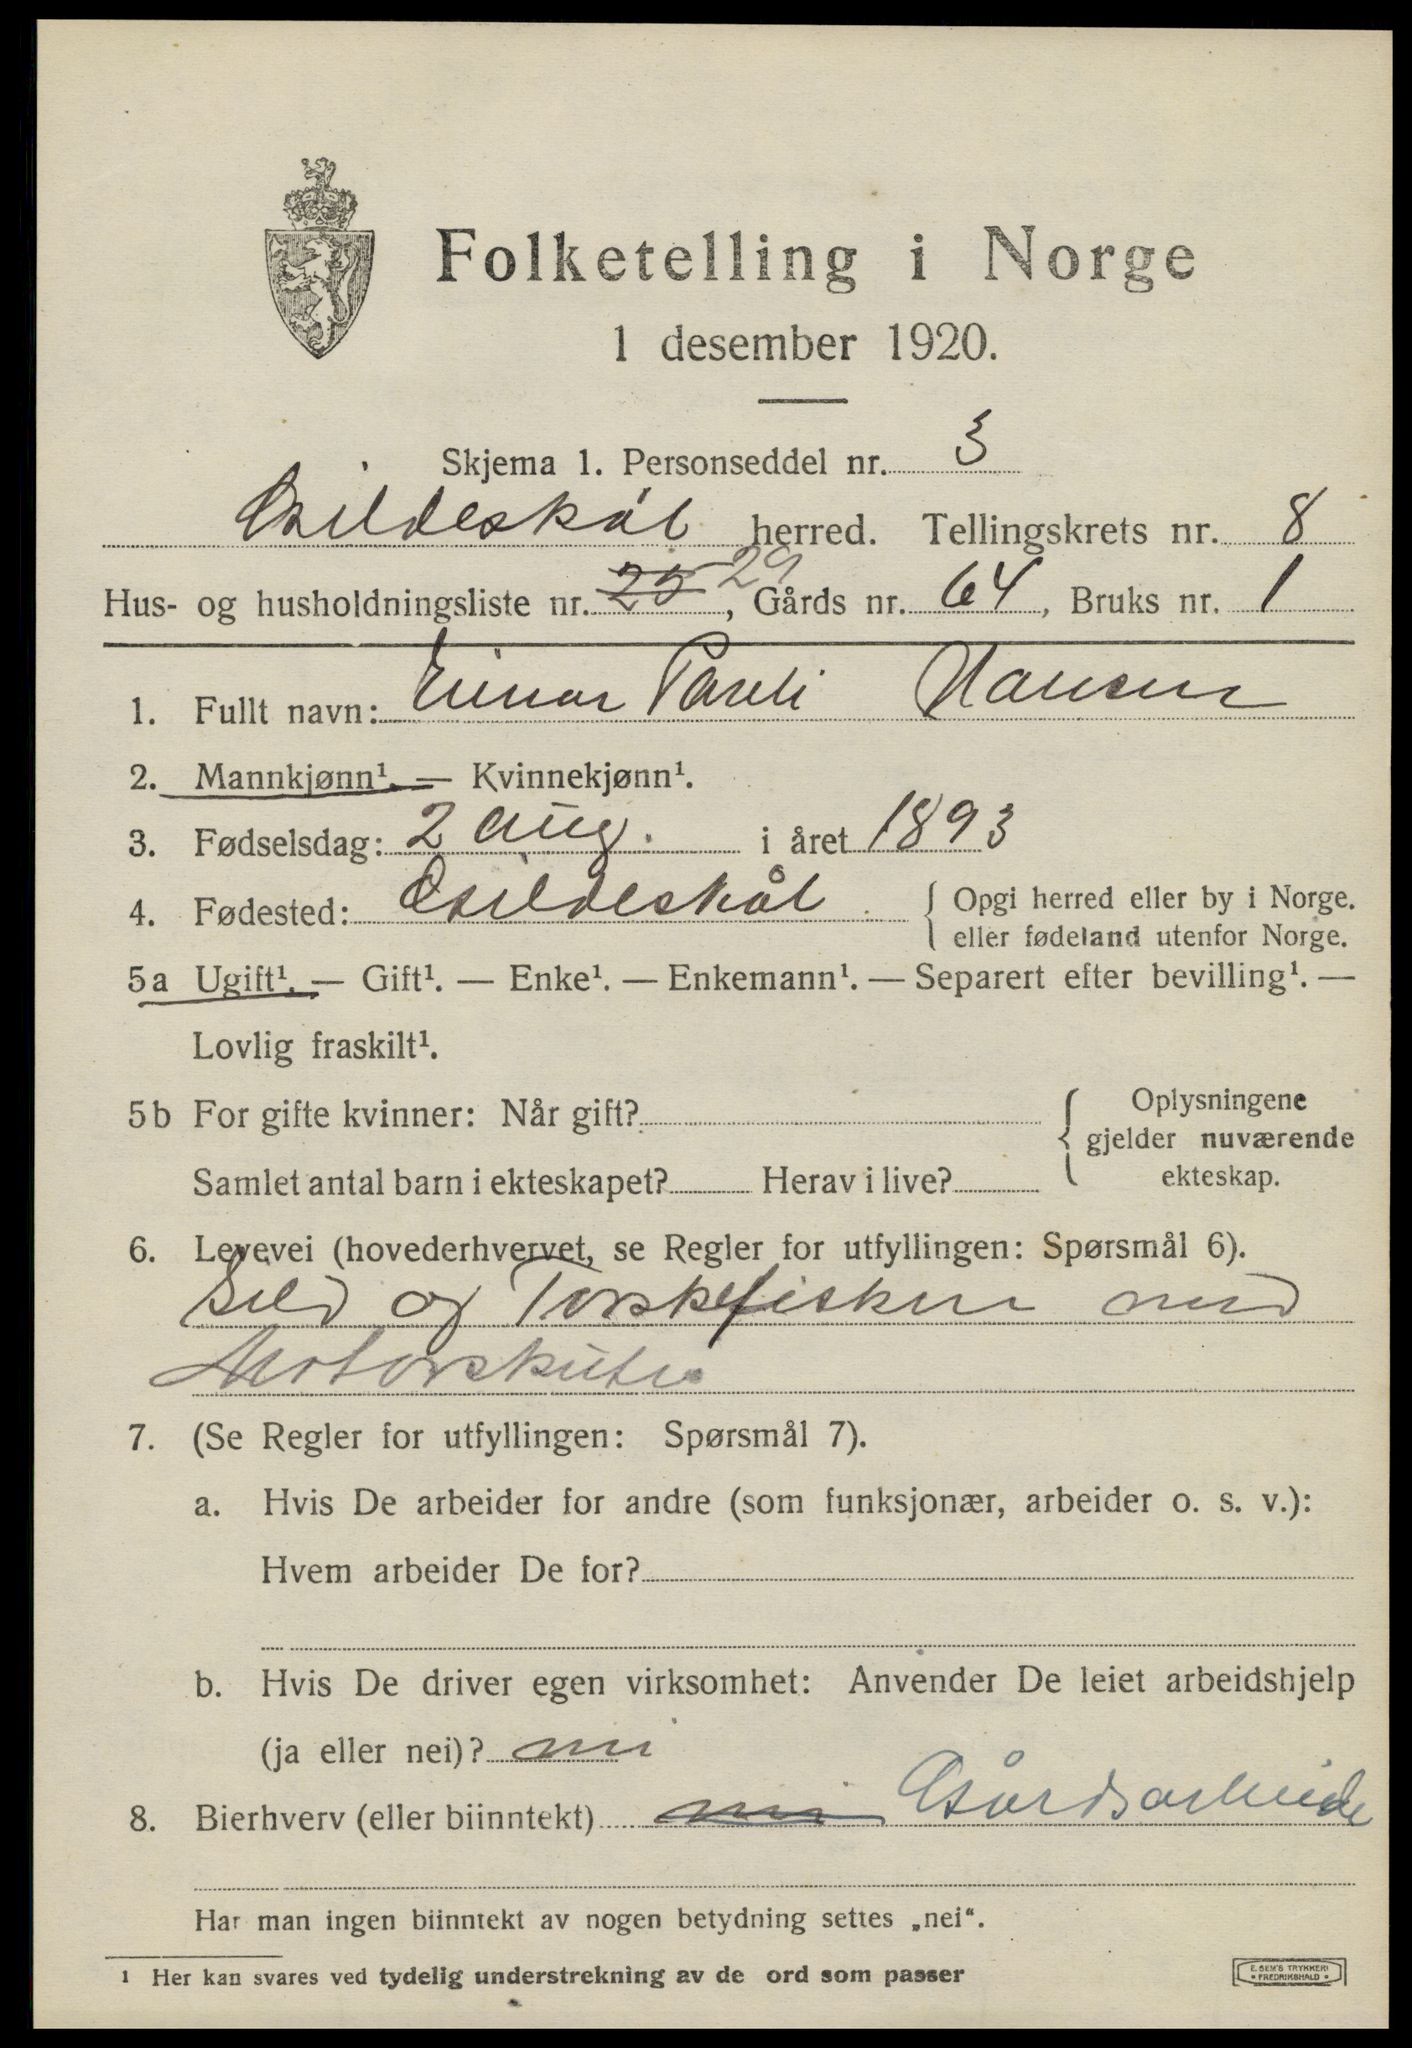 Folketelling i Norge
1 desember 1920.
Skjema 1. Personseddel nr. 3
Gildeskål herred. Tellingskrets nr. 8
Hus- og husholdningsliste nr. 25 29, Gårds nr. 64, Bruks nr. 1
1. Fullt navn: Einar Pareli Hansen
2. Mannkjønn¹. — Kvinnekjønn¹.
3. Fødselsdag: 2 aug. i året 1893
4. Fødested: Gildeskål { Opgi herred eller by i Norge.
eller fødeland utenfor Norge.
5a Ugift¹. — Gift¹. — Enke¹. — Enkemann¹. — Separert efter bevilling¹. —
Lovlig fraskilt¹.
5b For gifte kvinner: Når gift? { Oplysningene
gjelder nuværende
ekteskap.
Samlet antal barn i ekteskapet? Herav i live?
6. Levevei (hovederhvervet, se Regler for utfyllingen: Spørsmål 6).
Sild og Torskefisker med
Motorskute
7. (Se Regler for utfyllingen: Spørsmål 7).
a. Hvis De arbeider for andre (som funksjonær, arbeider o. s. v.):
Hvem arbeider De for?
b. Hvis De driver egen virksomhet: Anvender De leiet arbeidshjelp
(ja eller nei)? nei
8. Bierhverv (eller biinntekt) nei Gårdsarbeide
Har man ingen biinntekt av nogen betydning settes „nei“.
1 Her kan svares ved tydelig understrekning av de ord som passer
E. SEM'S TRYKKERI
• FREDRIKSHALD •